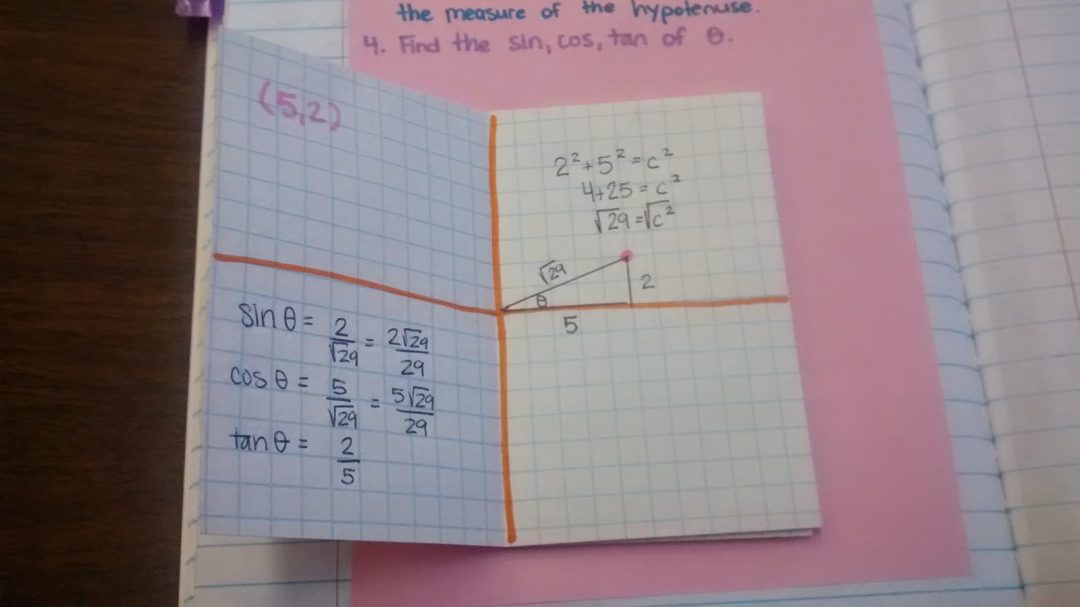 the measure of the hypotenuse.
4. Find the sin, cos, tan of θ.
(5,2)
2² + 5² = c²
4+25 = c²
√29 = √c²
√29
θ
2
5
sin θ = 2/√29 = 2√29/29
cos θ = 5/√29 = 5√29/29
tan θ = 2/5